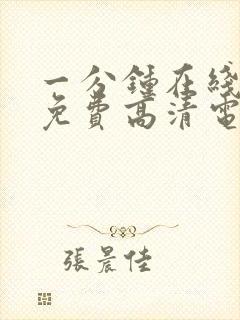 一分鍾在綫
免費高清電
張晨佳